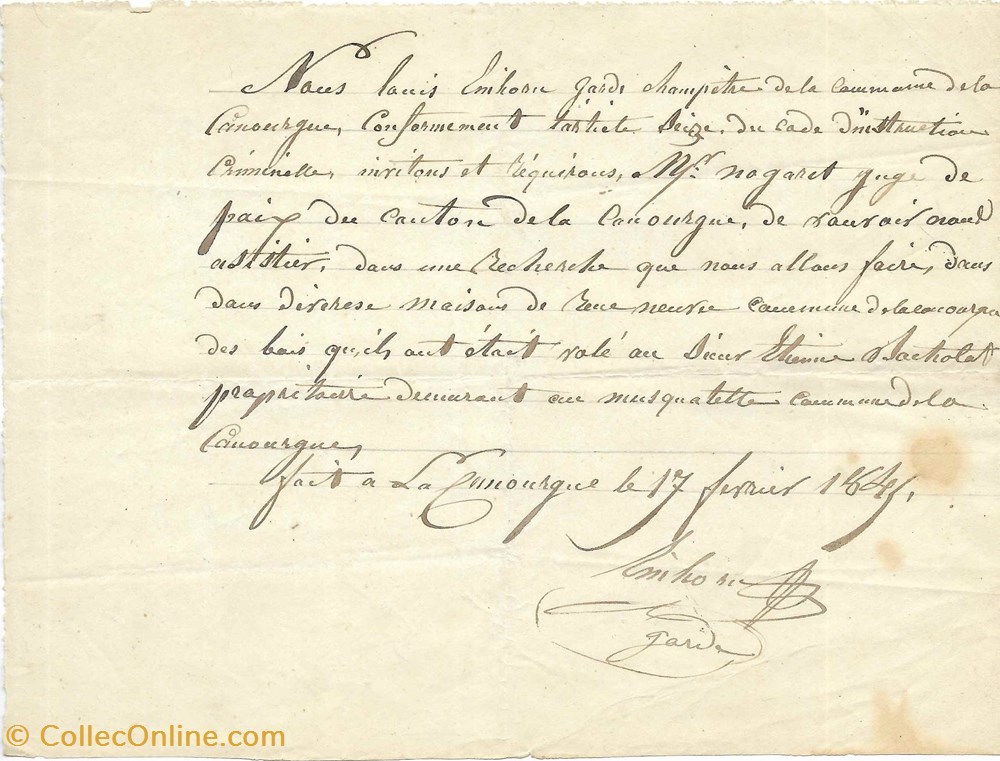 Nous louis Emhorn garde champêtre de la commune de la
Canourgue, Conformement l'article Seize, du code d'instruction
Criminelle, invitons et Réquirons, Mr. nogaret yuge de
paix du canton de la Canourgue, de vouvoir nous
asistier, dans une Recherche que nous allons faire, dans
dans diverese maisons de neuve commune de la canourgue
des bois qu'ils ont était volé au Sieur Etienne
propritairé demurant au musquatette commune de la
Canourgue,
fait a La Canourgue le 17 fevrier
Emhorn
garde
© CollecOnline.com